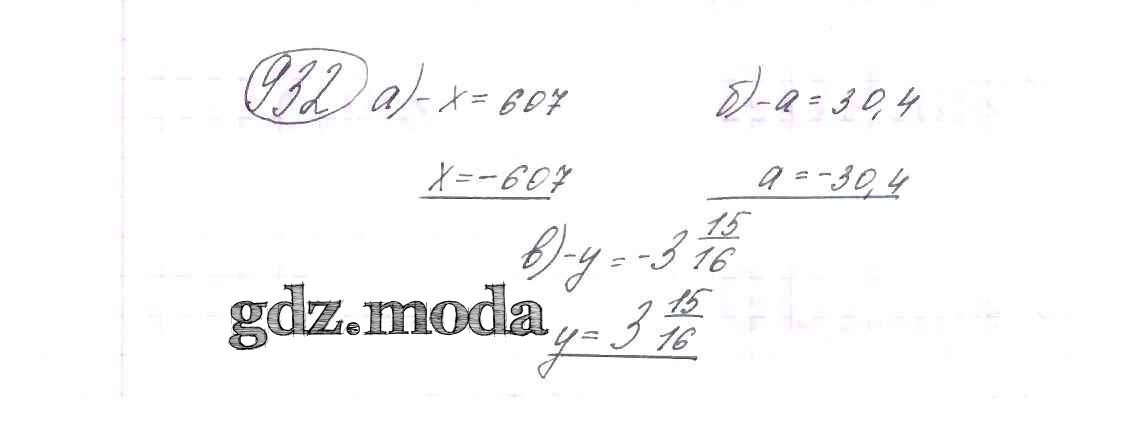 932 а) -x = 607 б) -a = 30,4
x = -607 a = -30,4
в) -y = -3 15/16
gdz.moda
y = 3 15/16